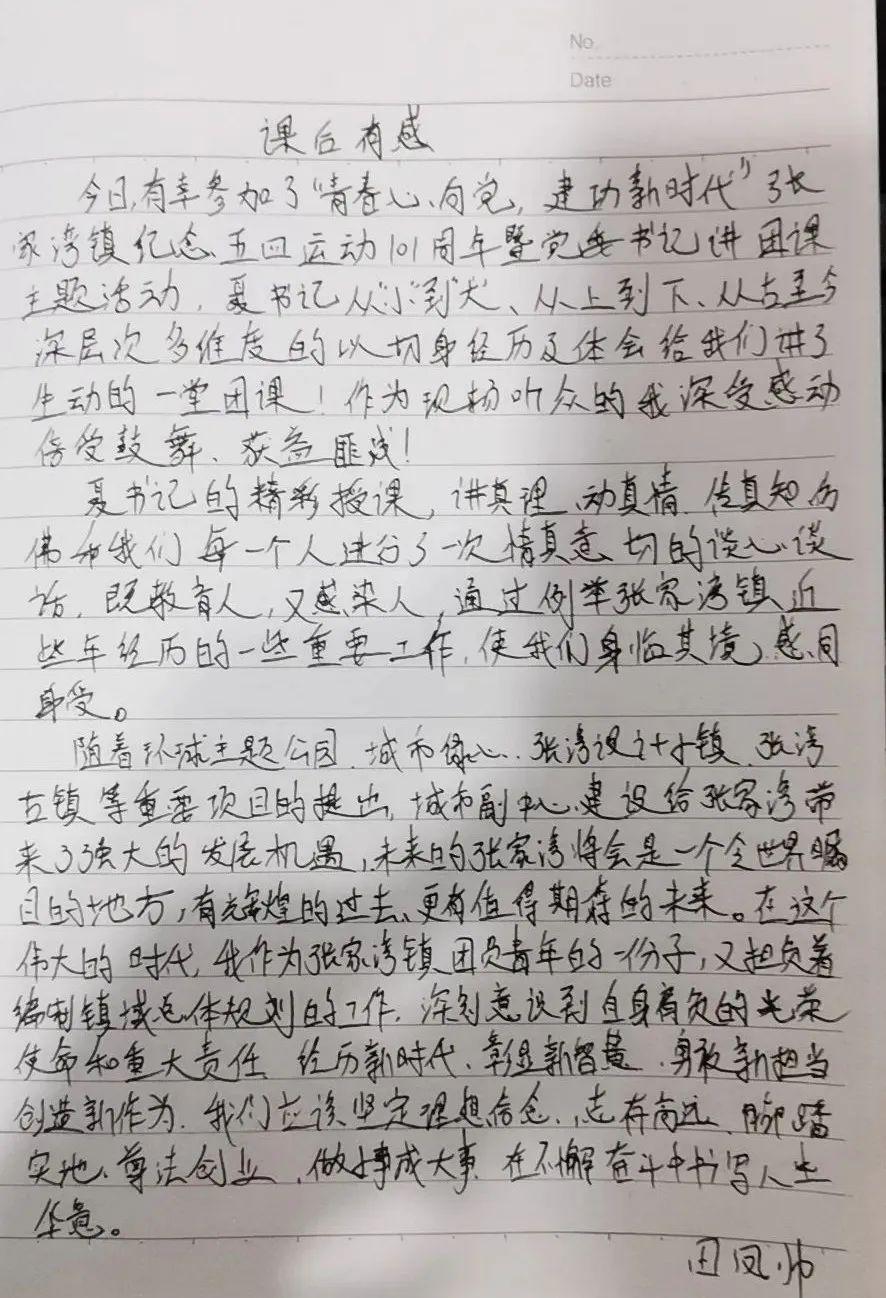 No.
Date
课后有感
今日,有幸参加了“青春心向党,建功新时代”张
家湾镇纪念五四运动101周年暨党委书记讲团课
主题活动,夏书记从“小”到“大”、从上到下、从古至今
深层次多维度的以切身经历及体会给我们讲了
生动的一堂团课!作为现场听众的我深受感动
倍受鼓舞、获益匪浅!
夏书记的精彩授课,讲真理、动真情、传真知仿
佛和我们每一个人进行了一次情真意切的谈心谈
话,既教育人,又感染人,通过例举张家湾镇近
些年经历的一些重要工作,使我们身临其境,感同
身受。
随着环球主题公园、城市绿心、张湾设计小镇、张湾
古镇等重要项目的提出,城市副中心建设给张家湾带
来了强大的发展机遇,未来的张家湾将会是一个令世界瞩
目的地方,有辉煌的过去、更有值得期待的未来。在这个
伟大的时代,我作为张家湾镇团员青年的一份子,又担负着
编制镇域总体规划的工作,深刻意识到自身肩负的光荣
使命和重大责任 经历新时代、彰显新智慧、勇敢新担当
创造新作为,我们应该坚定理想信念、志存高远、脚踏
实地、尊法创业、做小事成大事,在不懈奋斗中书写人生
华章。
田凤帅